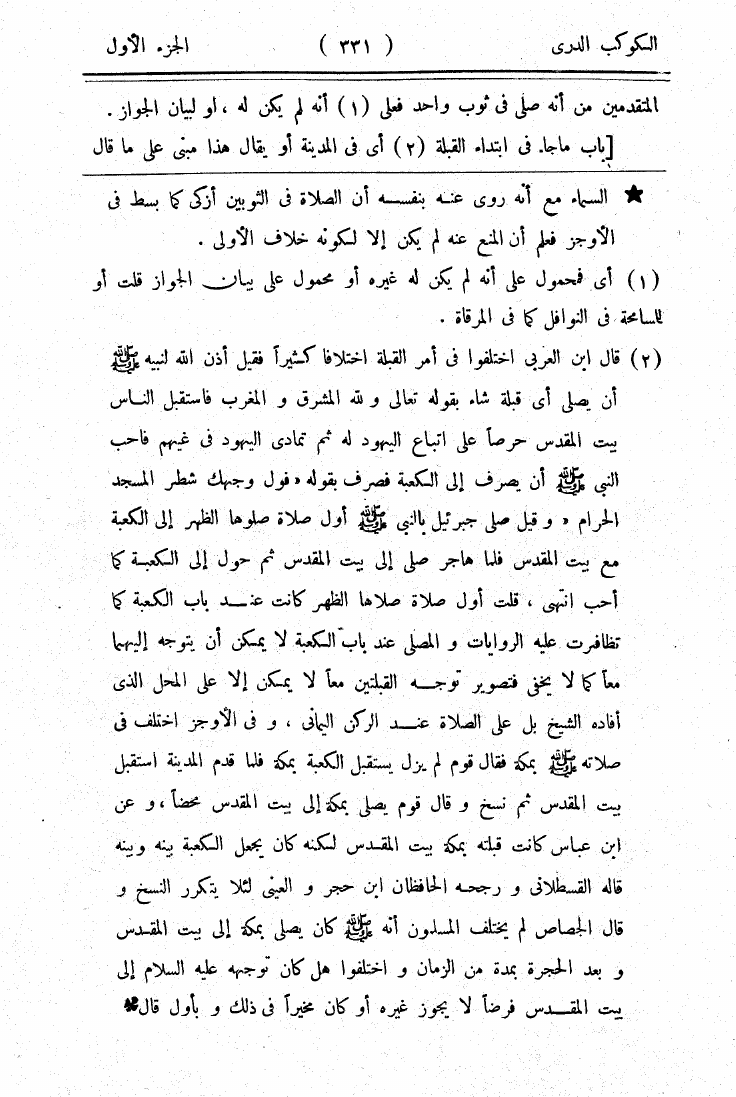 الكوكب الدرى ( ٣٣١ ) الجزء الأول
المتقدمين من أنه صلى فى ثوب واحد فعلى (١) أنه لم يكن له ، او لبيان الجواز .
[باب ماجاء فى ابتداء القبلة (٢) أى فى المدينة أو يقال هذا مبنى على ما قال
★ السماء مع أنه روى عنه بنفسه أن الصلاة فى الثوبين أزكى كما بسط فى
الأوجز فعلم أن المنع عنه لم يكن إلا لكونه خلاف الأولى .
(١) أى فمحمول على أنه لم يكن له غيره أو محمول على بيان الجواز قلت أو
للمسامحة فى النوافل كما فى المرقاة .
(٢) قال ابن العربى اختلفوا فى أمر القبلة اختلافا كثيراً فقيل أذن الله لنبيه ﷺ
أن يصلى أى قبلة شاء بقوله تعالى و لله المشرق و المغرب فاستقبل الناس
بيت المقدس حرصاً على اتباع اليهود له ثم تمادى اليهود فى غيهم فاحب
النبى ﷺ أن يصرف إلى الكعبة فصرف بقوله « فول وجهك شطر المسجد
الحرام » و قيل صلى جبرئيل بالنبى ﷺ أول صلاة صلوها الظهر إلى الكعبة
مع بيت المقدس فلما هاجر صلى إلى بيت المقدس ثم حول إلى الكعبة كما
أحب انتهى ، قلت أول صلاة صلاها الظهر كانت عند باب الكعبة كما
تظافرت عليه الروايات و المصلى عند باب الكعبة لا يمكن أن يتوجه إليهما
معاً كما لا يخفى فتصوير توجه القبلتين معاً لا يمكن إلا على المحل الذى
أفاده الشيخ بل على الصلاة عند الركن اليمانى ، و فى الأوجز اختلف فى
صلاته ﷺ بمكة فقال قوم لم يزل يستقبل الكعبة بمكة فلما قدم المدينة استقبل
بيت المقدس ثم نسخ و قال قوم يصلى بمكة إلى بيت المقدس محضاً ، و عن
ابن عباس كانت قبلته بمكة بيت المقدس لكنه كان يجعل الكعبة بينه وبينه
قاله القسطلانى و رجحه الحافظان ابن حجر و العينى لئلا يتكرر النسخ و
قال الجصاص لم يختلف المسلمون أنه ﷺ كان يصلى بمكة إلى بيت المقدس
و بعد الهجرة بمدة من الزمان و اختلفوا هل كان توجهه عليه السلام إلى
بيت المقدس فرضاً لا يجوز غيره أو كان مخيراً فى ذلك و بأول قال✽